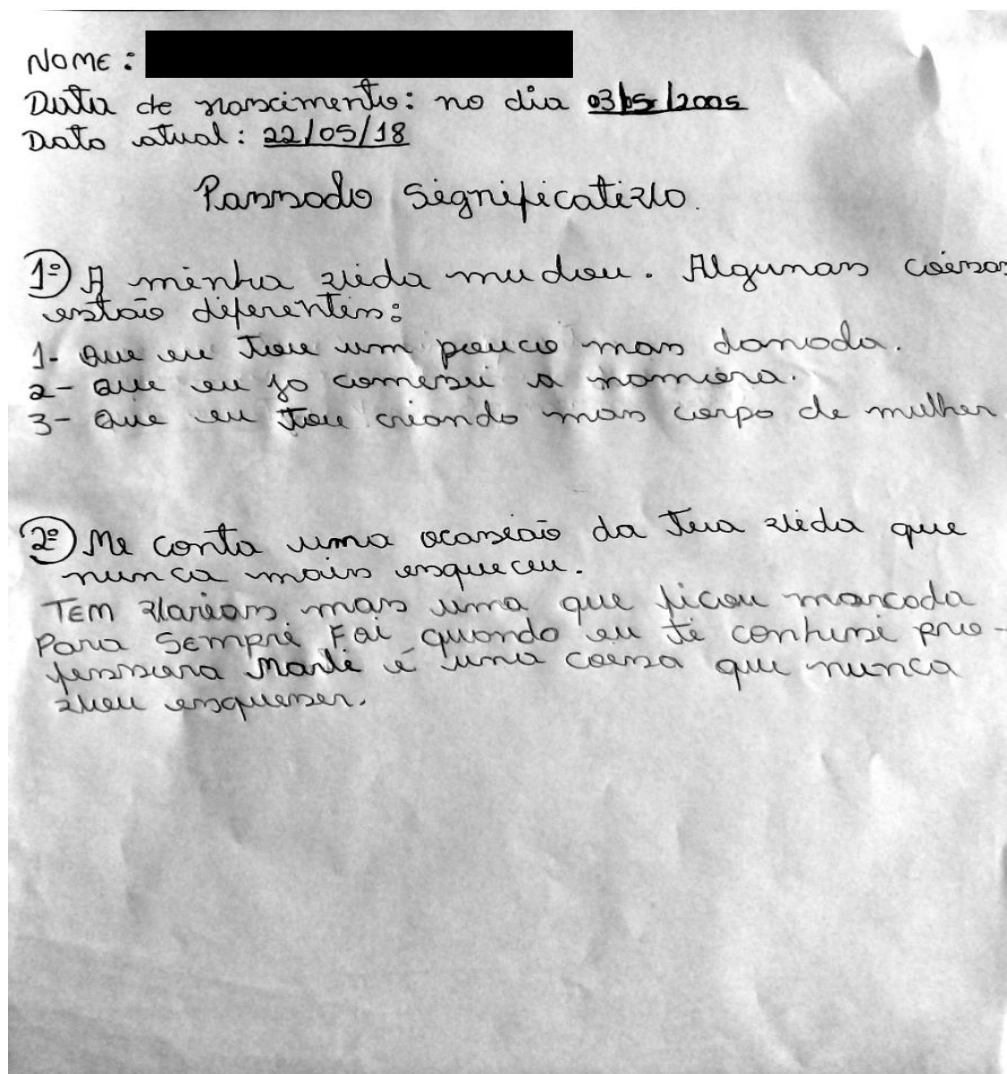 NOME:
Data de nascimento: no dia 03/05/2005
Data atual: 22/05/18
Passado Significativo.
1º) A minha vida mudou. Algumas coisas
estão diferentes:
1- Que eu tou um pouco mas danada.
2- Que eu ja comesei a namora.
3- Que eu tou criando mas corpo de mulher
2º) Me conta uma ocasião da tua vida que
nunca mais esqueceu.
TEM varias mas uma que ficou marcada
Para Sempre Foi quando eu te conhesi pro-
fessora Marli é uma coisa que nunca
vou esqueser.